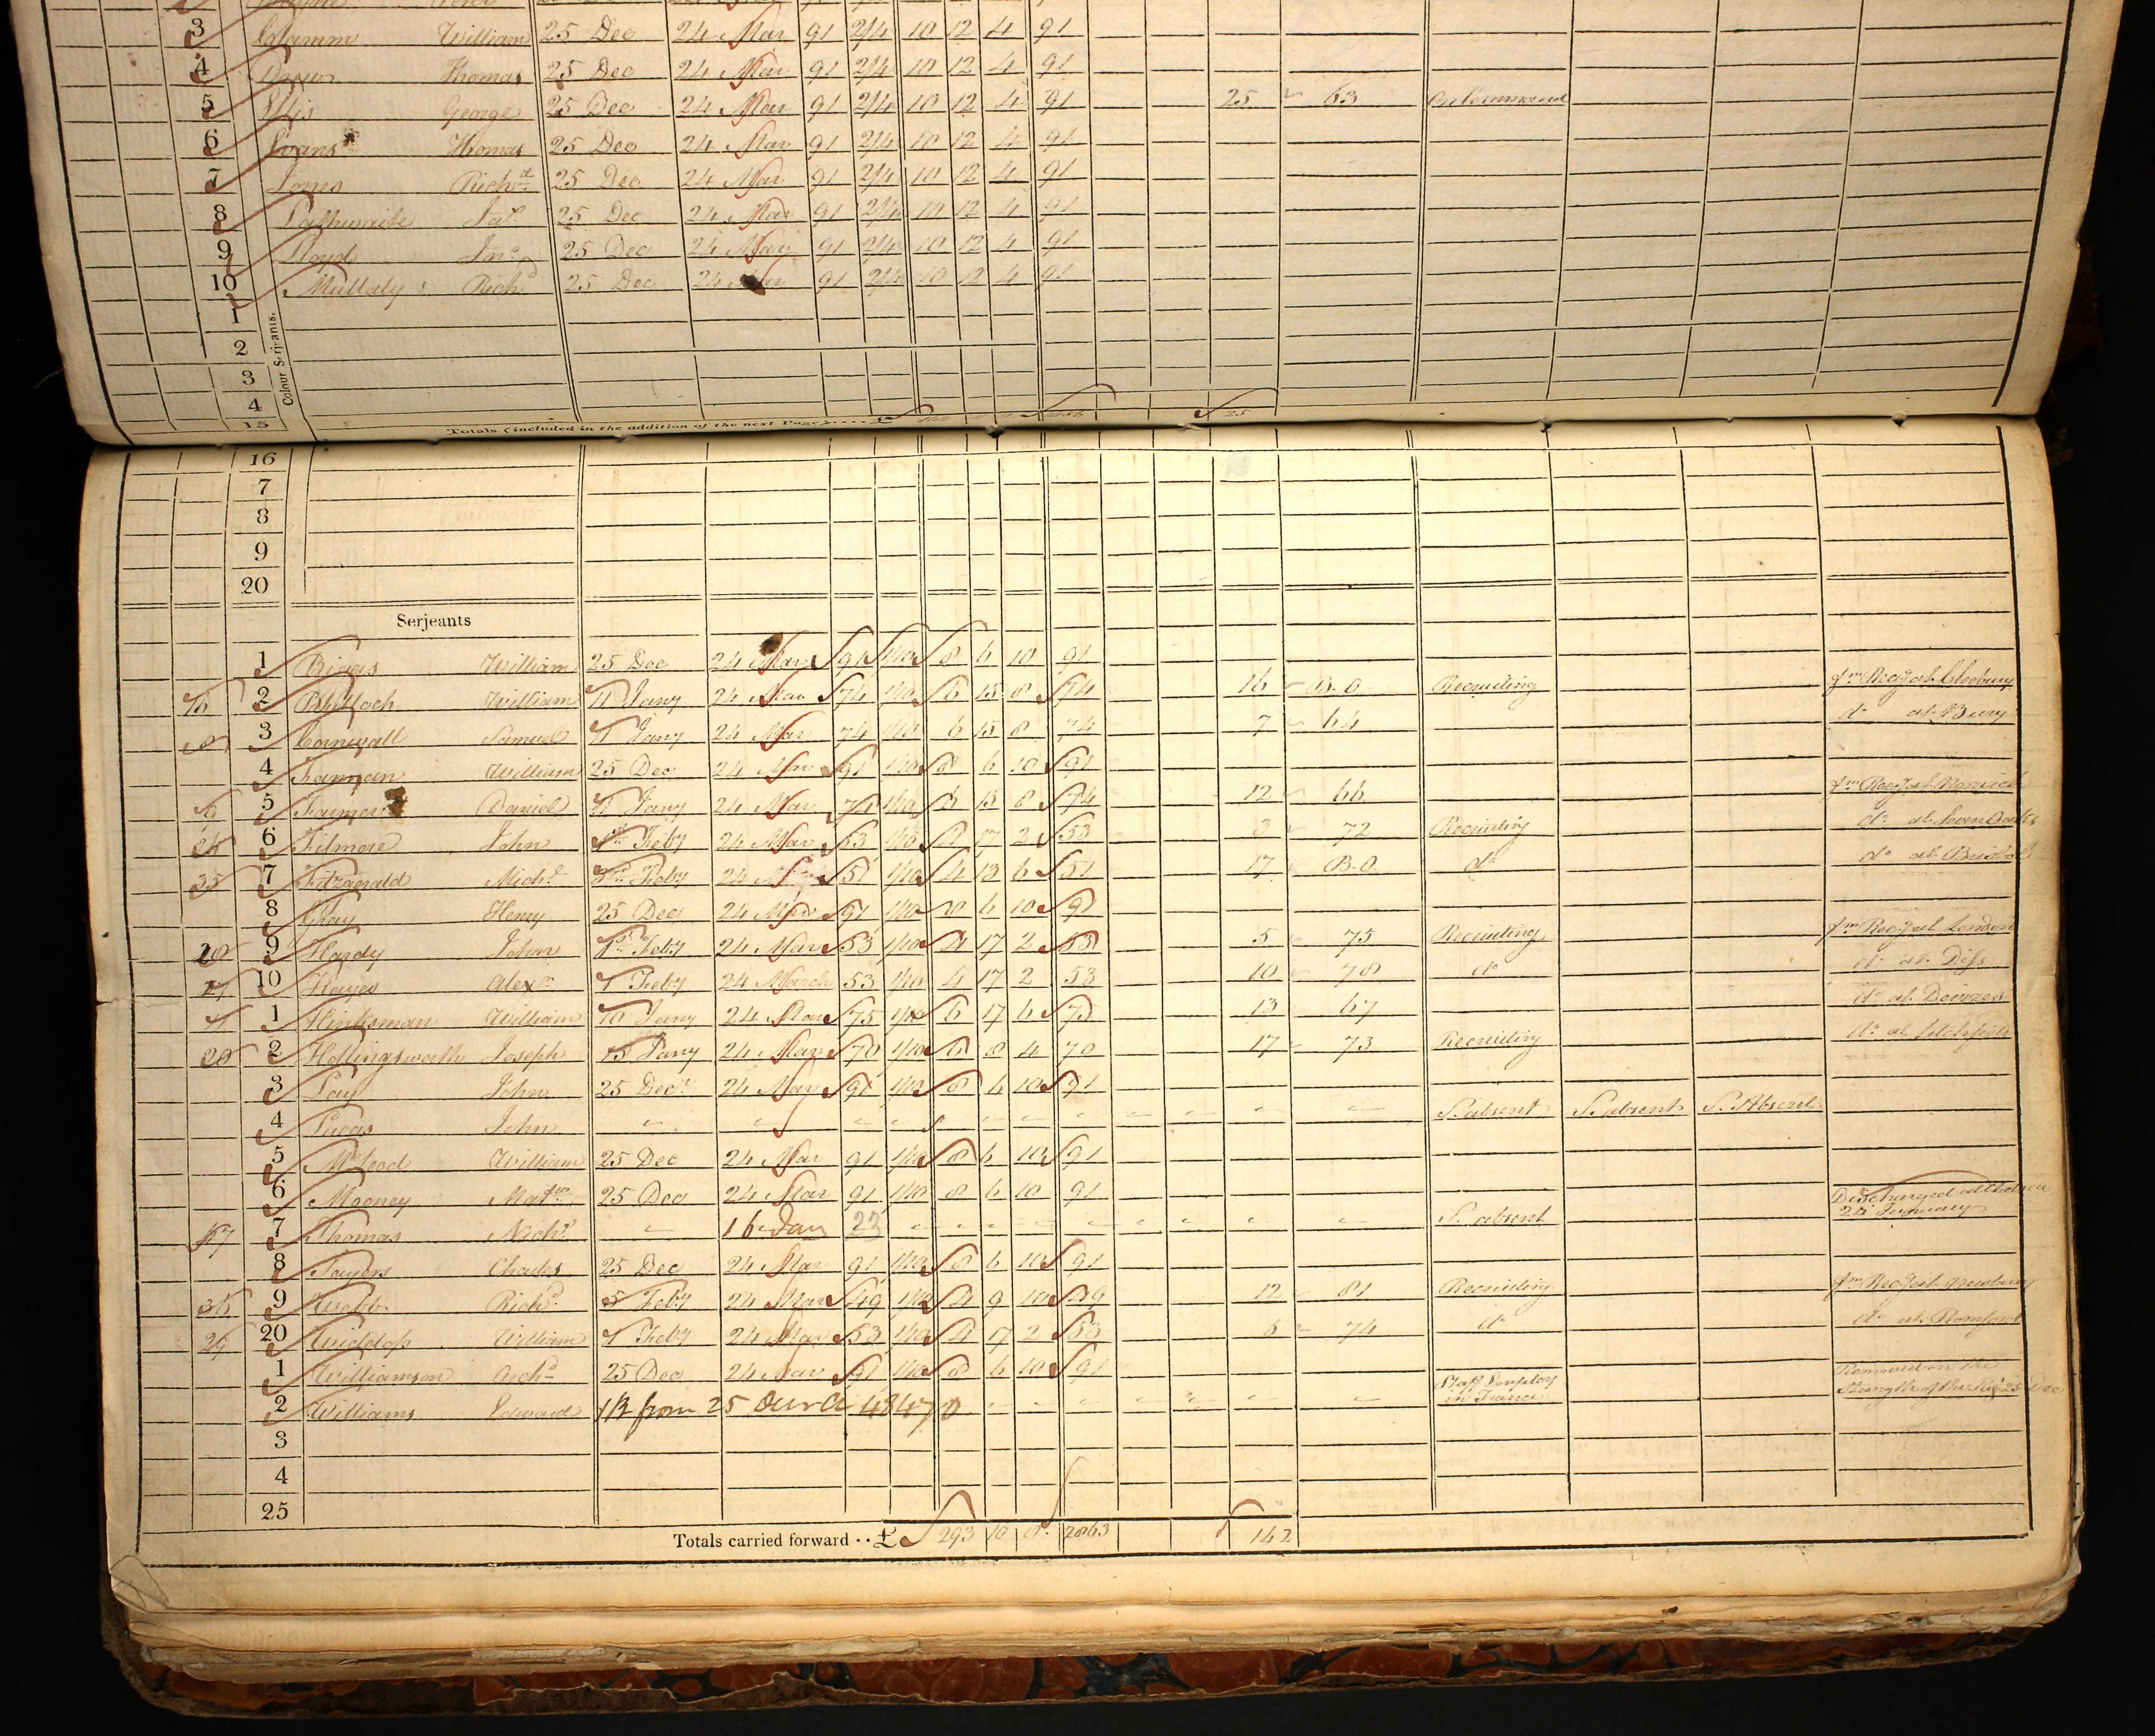 3 Clamm William 25 Dec 24 Mar 91 2/4 10 12 4 91
4 Thomas 25 Dec 24 Mar 91 2/4 10 12 4 91
5 Ellis George 25 Dec 24 Mar 91 2/4 10 12 4 91 25 63 On Command
6 Evans Thomas 25 Dec 24 Mar 91 2/4 10 12 4 91
7 Jones Richd 25 Dec 24 Mar 91 2/4 10 12 4 91
8 Jas 25 Dec 24 Mar 91 2/4 10 12 4 91
9 Lloyd Jno 25 Dec 24 Mar 91 2/4 10 12 4 91
10 Mullaly Richd 25 Dec 24 Mar 91 2/4 10 12 4 91
1
2
3
4
Colour Serjeants.
15 Totals (included in the addition of the next Page) .... £ 25
16
7
8
9
20
Serjeants
1 William 25 Dec 24 Mar 91 1/10 8 6 10 91
2 William 11 Jany 24 Mar 74 1/10 6 15 8 74 16 B.O Recruiting
3 Cornwall Samuel 11 Jany 24 Mar 74 1/10 6 15 8 74 7 64 do at Bury
4 Farman William 25 Dec 24 Mar 91 1/10 8 6 10 91
5 Farmer Daniel 11 Jany 24 Mar 74 1/10 6 15 8 74 12 66 fm Recg at Norwich
6 Filmore John 1st Feby 24 Mar 53 1/10 4 17 2 53 3 72 Recruiting do at Seven Oaks
35 7 Fitzgerald Michl 3rd Feby 24 Mar 51 1/10 4 13 6 51 17 B.O. do do at Bristol
8 Gray Henry 25 Dec 24 Mar 91 1/10 8 6 10 91
9 Hardy John 1st Feby 24 Mar 53 1/10 4 17 2 53 5 75 Recruiting fm Recg at London
10 Hayes Alexr 1 Feby 24 March 53 1/10 4 17 2 53 10 78 do do at Diss
1 Hinksman William 10 Jany 24 Mar 75 1/10 6 17 6 75 13 67 do at Devizes
2 Hollingsworth Joseph 15 Jany 24 Mar 70 1/10 6 8 4 70 17 73 Recruiting do at Litchfield
3 Lay John 25 Decr 24 Mar 91 1/10 8 6 10 91
4 Lucas John S. absent S. absent S. Absent
5 McLeod William 25 Dec 24 Mar 91 1/10 8 6 10 91
6 Mooney Matw 25 Dec 24 Mar 91 1/10 8 6 10 91
7 Thomas Nichs 16 Jan 23 S. absent Discharged at Chelsea 24 January
8 Charles 25 Dec 24 Mar 91 1/10 8 6 10 91
36 9 Webb Richd 5 Feby 24 Mar 49 1/10 4 9 10 49 12 81 Recruiting fm Recg at Newbury
29 20 William 1 Feby 24 Mar 53 1/10 4 17 2 53 74 do do at Romford
1 Williamson Archd 25 Dec 24 Mar 91 1/10 8 6 10 91
2 Williams Edward from 25 Staff Employ in France Remained on the Strength of the Regt 25 Dec
3
4
25
Totals carried forward .. £ 293 10 2863 142